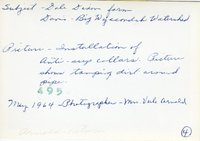 Subject - Dale Dixon farm
Davis - Big Wyacondah Watershed
Picture - Installation of
Anti-seep collars. Picture
show tamping dirt around
pipe.
495
May 1964 - Photographer - Mrs Vale Arnold
4